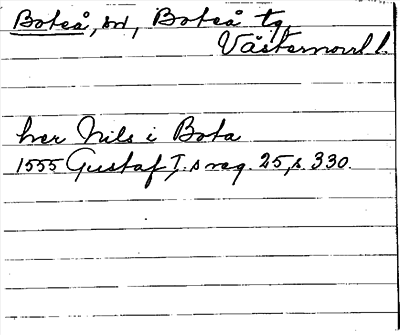 Boteå, sn, Boteå tg
Västernorrl l.
her Nils i Bota
1555 Gustaf I:s reg. 25, s. 330.